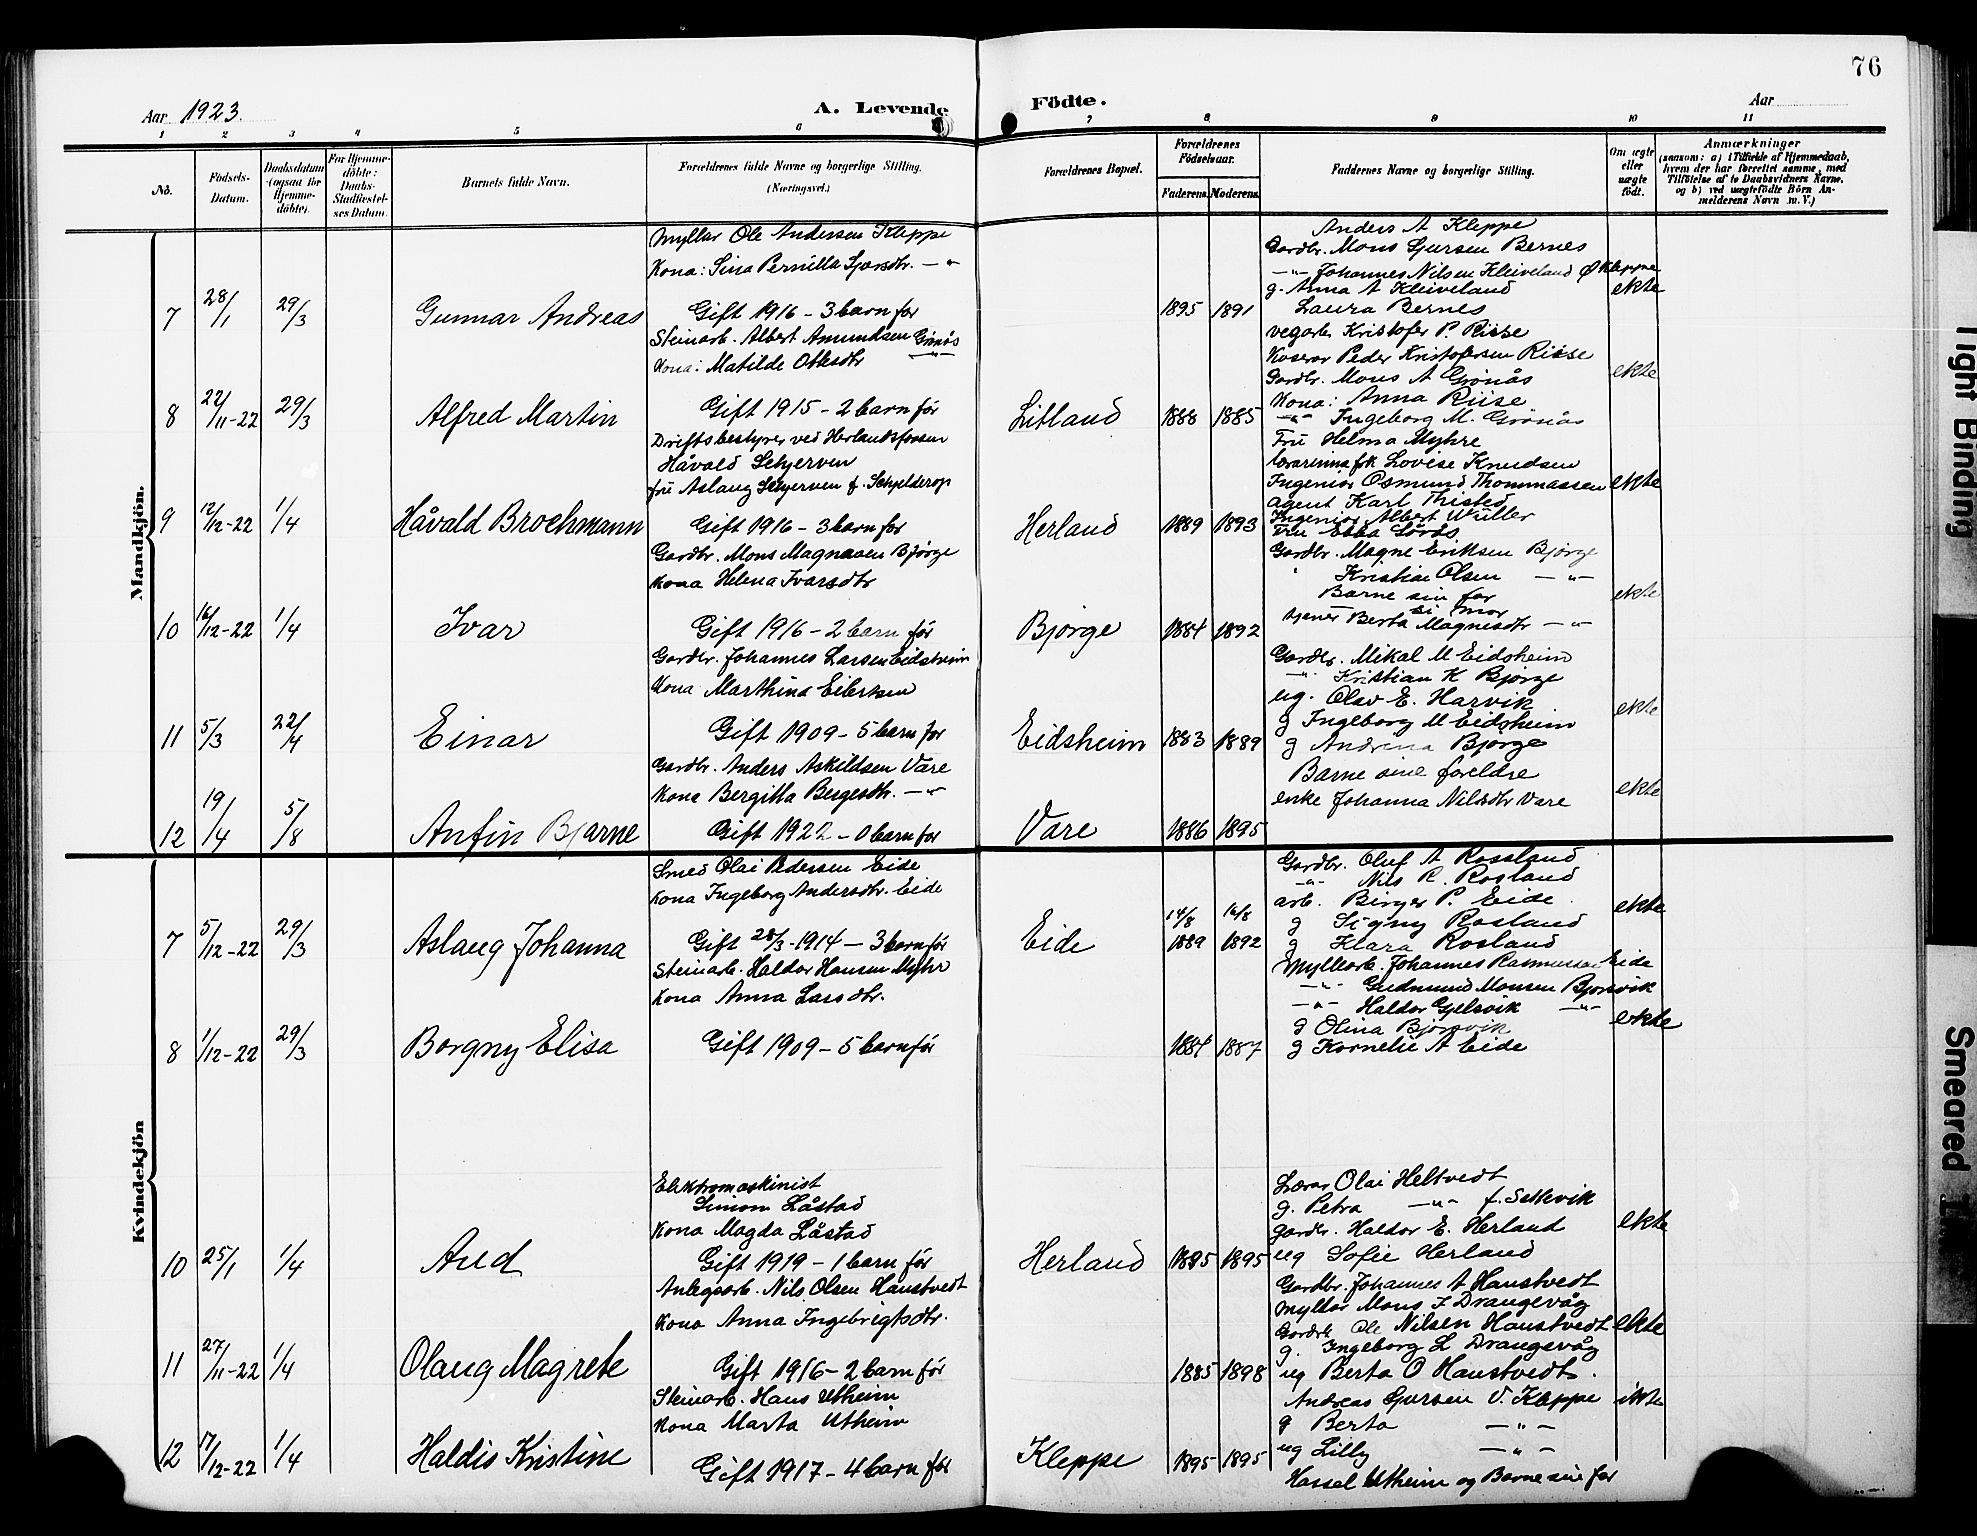 76
Aar 1923.
A. Levende Födte.
Aar
1 2 3 4 5 6 7 8 9 10 11
No.
Födsels-
Datum.
Daabsdatum
(ogsaa for
Hjemme-
döbte).
For Hjemme-
döbte:
Daabs-
Stadfæstel-
ses Datum.
Barnets fulde Navn.
Forældrenes fulde Navne og borgerlige Stilling.
(Næringsvei.)
Forældrenes Bopæl.
Forældrenes
Födselsaar.
Faderens. Moderens.
Faddrenes Navne og borgerlige Stilling.
Om ægte
eller
uægte
födt.
Anmærkninger
(saasom: a) i Tilfælde af Hjemmedaab,
hvem der har forrettet samme, med
Tilföielse af to Daabsvidners Navne,
og b) ved uægtefödte Börn An-
melderens Navn m. V.)
Mandkjön.
7 28/1 29/3 Gunnar Andreas
Myllar Ole Andersen Kleppe
Kona: Sina Pernilla Sjursdtr. — " —
Gift 1916 – 3 barn før
1895 1891
Anders A Kleppe
Gardbr. Mons Sjursen Bernes
—"— Johannes Nilsen Kleiveland Ø Kleppe
g. Anna A Kleiveland
Laura Bernes
ekte
8 22/11-22 29/3 Alfred Martin
Steinarb. Albert Amundsen Grønås
Kona: Matilde Ottesdtr —"—
Gift 1915 – 2 barn før
Litland
1888 1885
vegarb Kristofer P. Riise
Kuserar Peder Kristofersen Riise
Gardbr. Mons A Grønås
Kona: Anna Riise
—"— Ingeborg M. Grønås
ekte
9 12/12-22 1/4 Håvald Brochmann
Driftsbestyrer ved Herlandsfossen
Håvald Schjerven
fru Aslaug Schjerven f. Schjelderop
Gift 1916 – 3 barn før
Herland
1889 1893
Fru Helma Myhre
lærarinna frk Lovise Knudsen
Ingeniør Osmund Thommassen
agent Karl Thisted
Ingeniør Albert Wüller
Fru Ebba
ekte
10 16/12-22 1/4 Ivar
Gardbr. Mons Magnasen Bjørge
Kona Helena Ivarsdtr
Gift 1916 – 2 barn før
Bjørge
1884 1892
Gardbr. Magne Eriksen Bjørge
" Kristian Olsen —"—
Barne sin far
si mor
tjener Berta Magnesdtr —"—
ekte
11 5/3 22/4 Einar
Gardbr. Johannes Larsen Eidsheim
Kona Marthina Eilertsen
Gift 1909 – 5 barn før
Eidsheim
1883 1889
Gardbr. Mikal M Eidsheim
—"— Kristian K Bjørge
ug. Olav E. Harvik
g Ingeborg M Eidsheim
g Andrina Bjørge
ekte
12 19/4 5/8 Anfin Bjarne
Gardbr. Anders Askildsen Vare
Kona Bergitta Bergesdtr. —"—
Gift 1922 – 0 barn før
Vare
1886 1895
Barne sine foreldre
enke Johanna Nilsdtr Vare
ekte
Kvindekjön
7 5/12-22 29/3 Aslaug Johanna
Smed Olai Pedersen Eide
Kona Ingeborg Andersdtr. Eide
Gift 28/3-1914 – 3 barn før
Eide
14/8 16/8
1889 1892
Gardbr. Oluf A Rossland
—"— Nils R. Rosland
arb. Birger P. Eide
g Signy Rosland
g Klara Rosland
ekte
8 1/12-22 29/3 Borgny Elisa
Steinarb. Haldor Hansen Myhr
Kona Anna Larsdtr.
Gift 1909 – 5 barn før
1884 1887
Myllearb. Johannes Rasmussen Eide
—"— Gudmund Monsen Bjørsvik
—"— Haldor Gjelsvik —"—
g Olina Bjørsvik
g Kornelie A Eide
ekte
10 25/1 1/4 Aud
Elektromaskinist
Simon Låstad
Kona Magda Låstad
Gift 1919 – 1 barn før
Herland
1885 1895
Lærar Olai Heltvedt
g. Petra —"— f. Settevik
gardbr. Haldor E. Herland
ug Sofie Herland
ekte
11 27/11-22 1/4 Olaug Magrete
Anlegsarb. Nils Olsen Haustvedt
Kona Anna Ingebrigtsdtr.
Gift 1916 – 2 barn før
1885 1898
Gardbr. Johannes A Haustvedt
Myllar Mons I Drangevåg
Gardbr Ole Nilsen Haustvedt
g. Ingeborg L Drangevåg
ug Berta O Haustvedt.
ekte
12 17/12-22 1/4 Haldis Kristine
Steinarb. Hans Utheim
Kona Marta Utheim
Gift 1917 – 4 barn før
Kleppe
1895 1895
Andreas Sjursen V. Kleppe
g Berta —"—
ug Lilly —"—
Hassel Utheim og Barne sin far
ikte
Tight Binding
Smeared